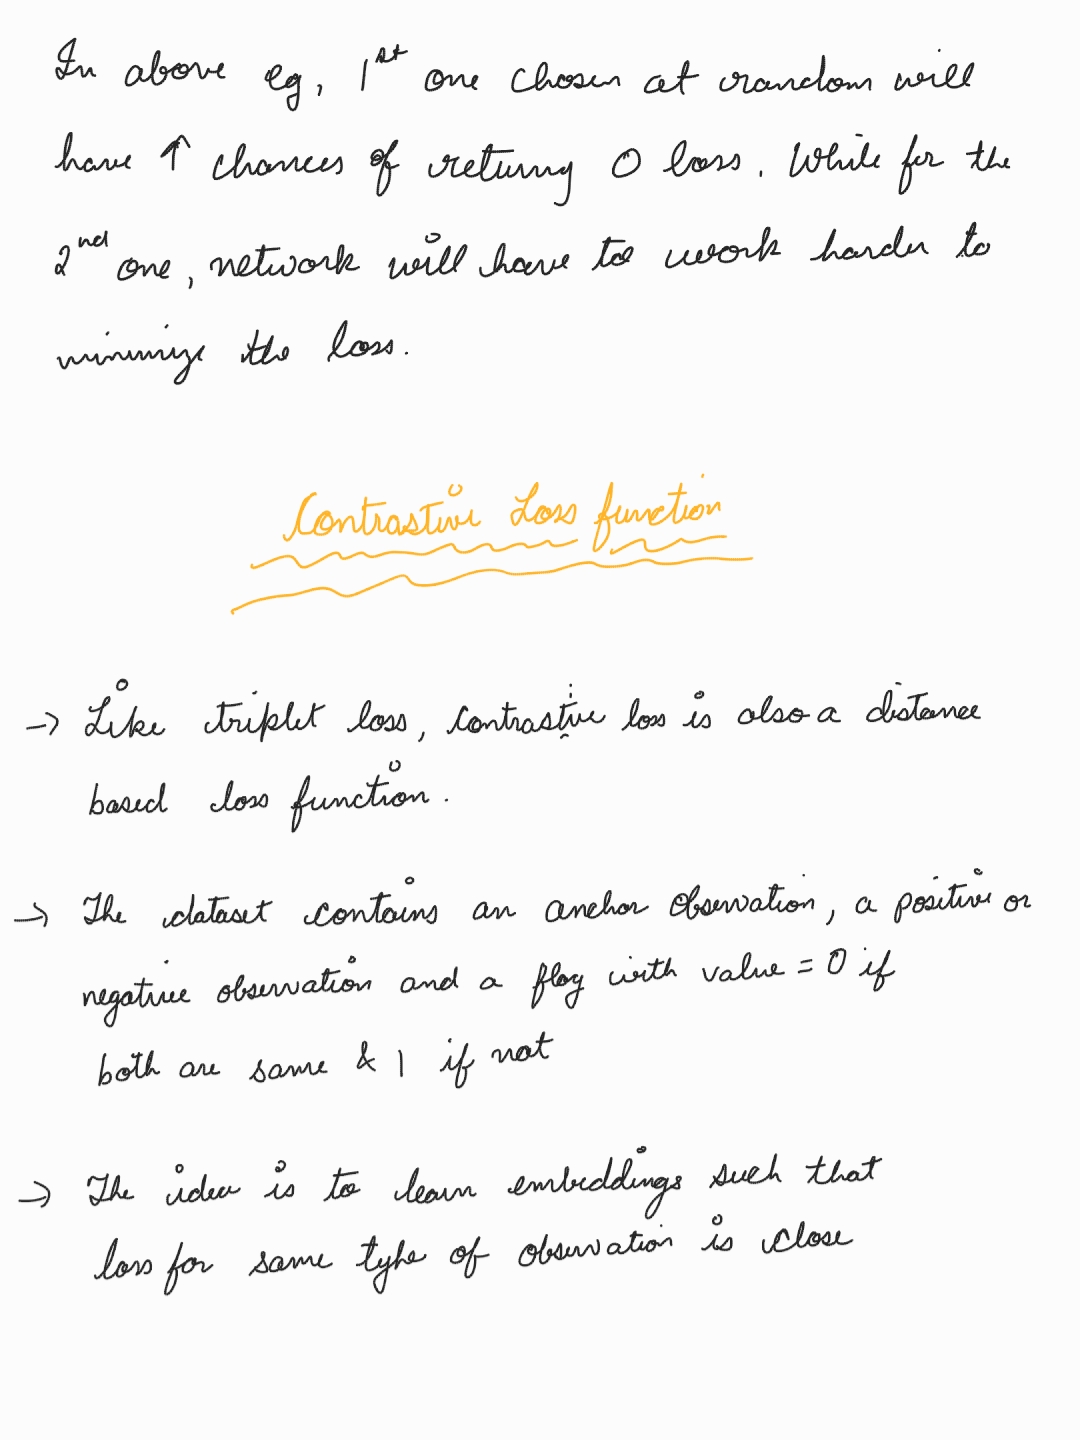 In above eg, 1st one chosen at random will
have ↑ chances of returng 0 loss. While for the
2nd one, network will have to work harder to
minimize the loss.
Contrastive Loss function
→ Like triplet loss, contrastive loss is also a distance
based loss function.
→ The dataset contains an anchor observation, a positive or
negative observation and a flag with value = 0 if
both are same & 1 if not
→ The idea is to learn embeddings such that
loss for same type of observation is close